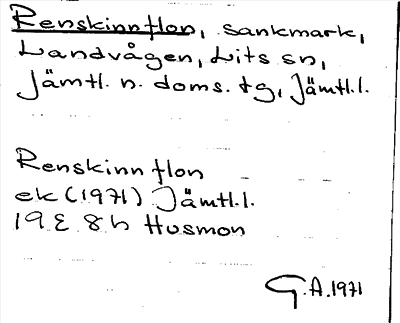 Renskinnflon, sankmark,
Landvågen, Lits sn,
Jämtl. n. doms. tg, Jämtl.l.
Renskinnflon
ek (1971) Jämtl.l.
19E 8h Husmon
G.A. 1971